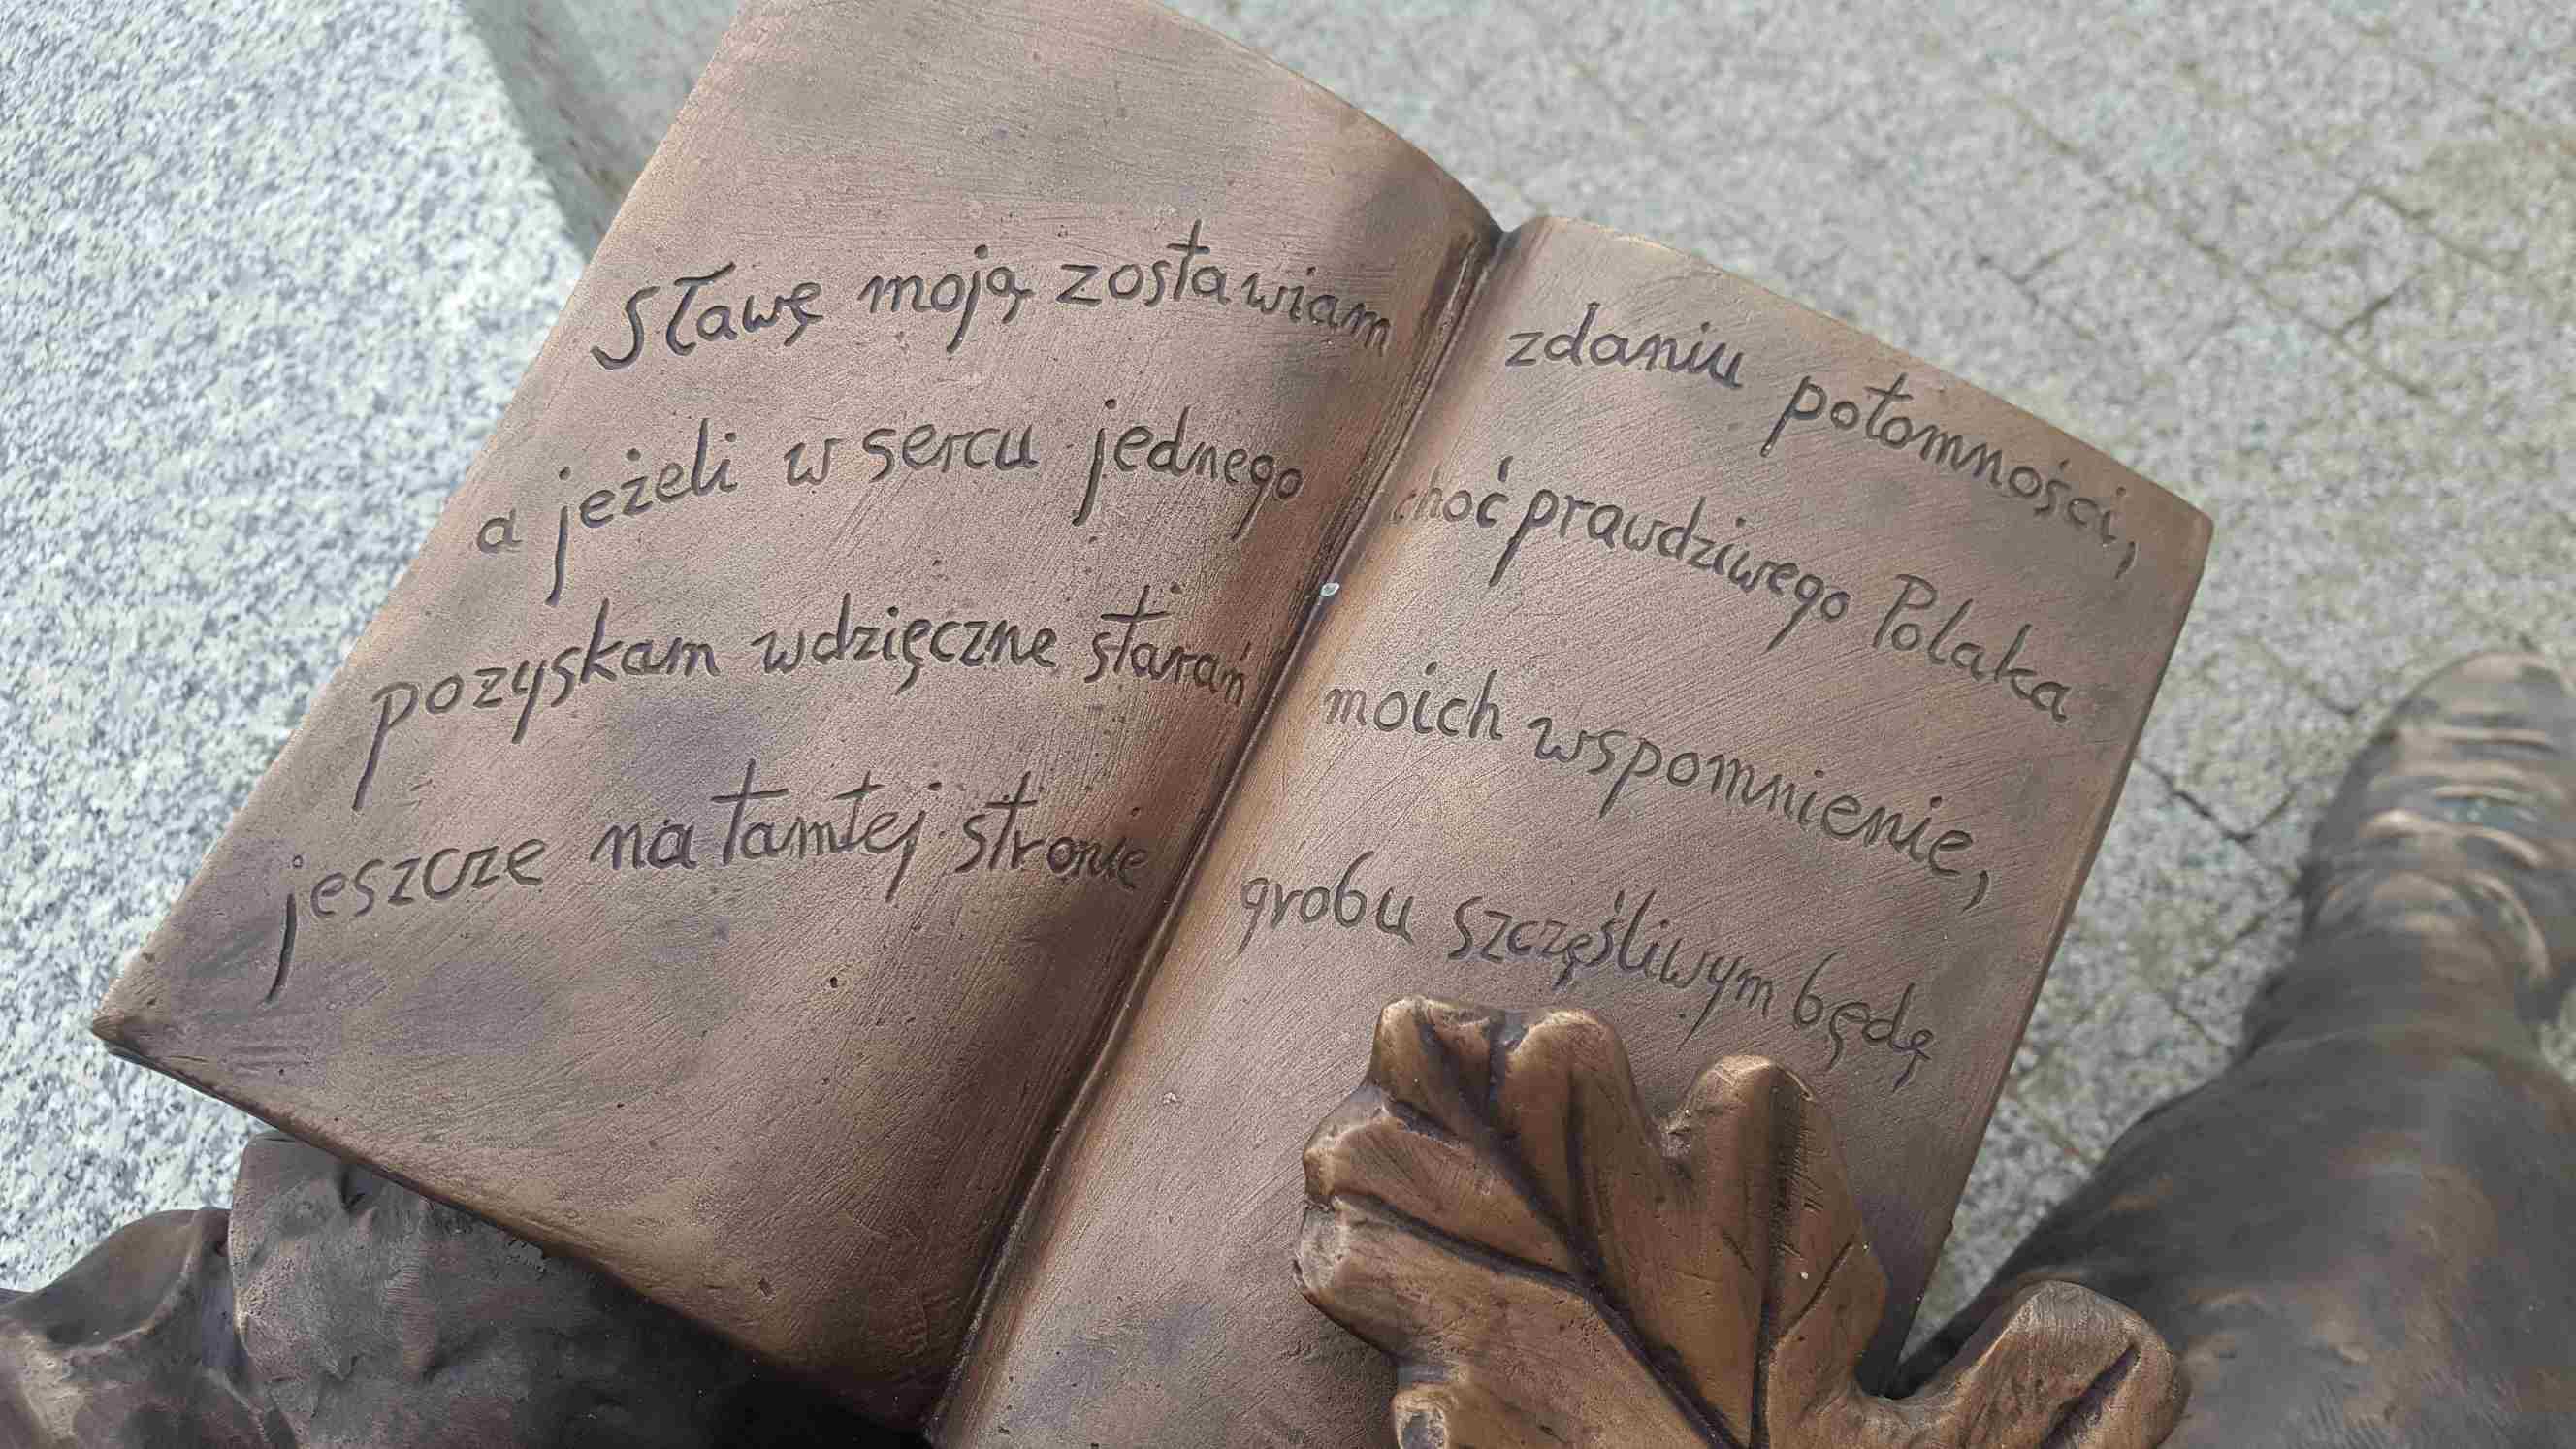 Sławę moją zostawiam zdaniu potomności,
a jeżeli w sercu jednego choć prawdziwego Polaka
pozyskam wdzięczne starań moich wspomnienie,
jeszcze na tamtej stronie grobu szczęśliwym będę